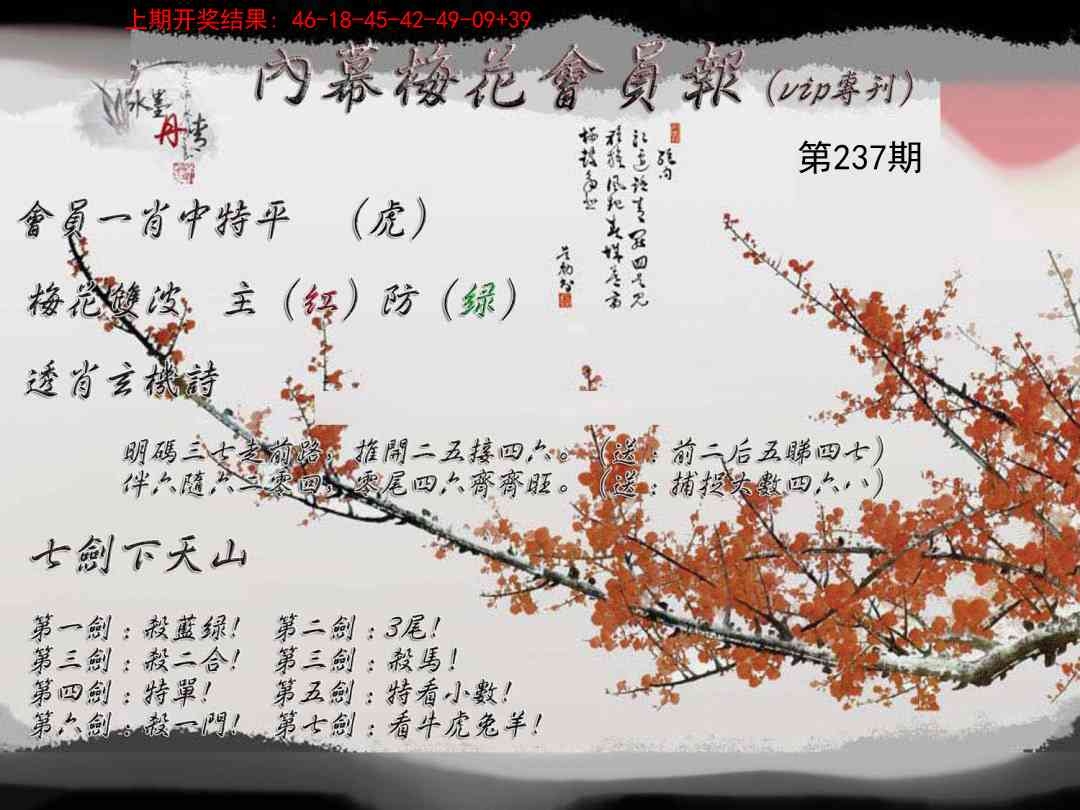 上期开奖结果：46-18-45-42-49-09+39
內幕梅花會員報（vip專刊）
水墨
丹青
第237期
會員一肖中特平　（虎）
梅花雙波　主（红）防（绿）
透肖玄機詩
明碼三七走前路，推開二五接四六。（送：前二后五睇四七）
伴六隨六二零四，零尾四六齊齊旺。（送：捕捉大數四六八）
七劍下天山
第一劍：殺藍绿！　第二劍：3尾！
第三劍：殺二合！　第三劍：殺馬！
第四劍：特單！　第五劍：特看小數！
第六劍：殺一門！　第七劍：看牛虎兔羊！